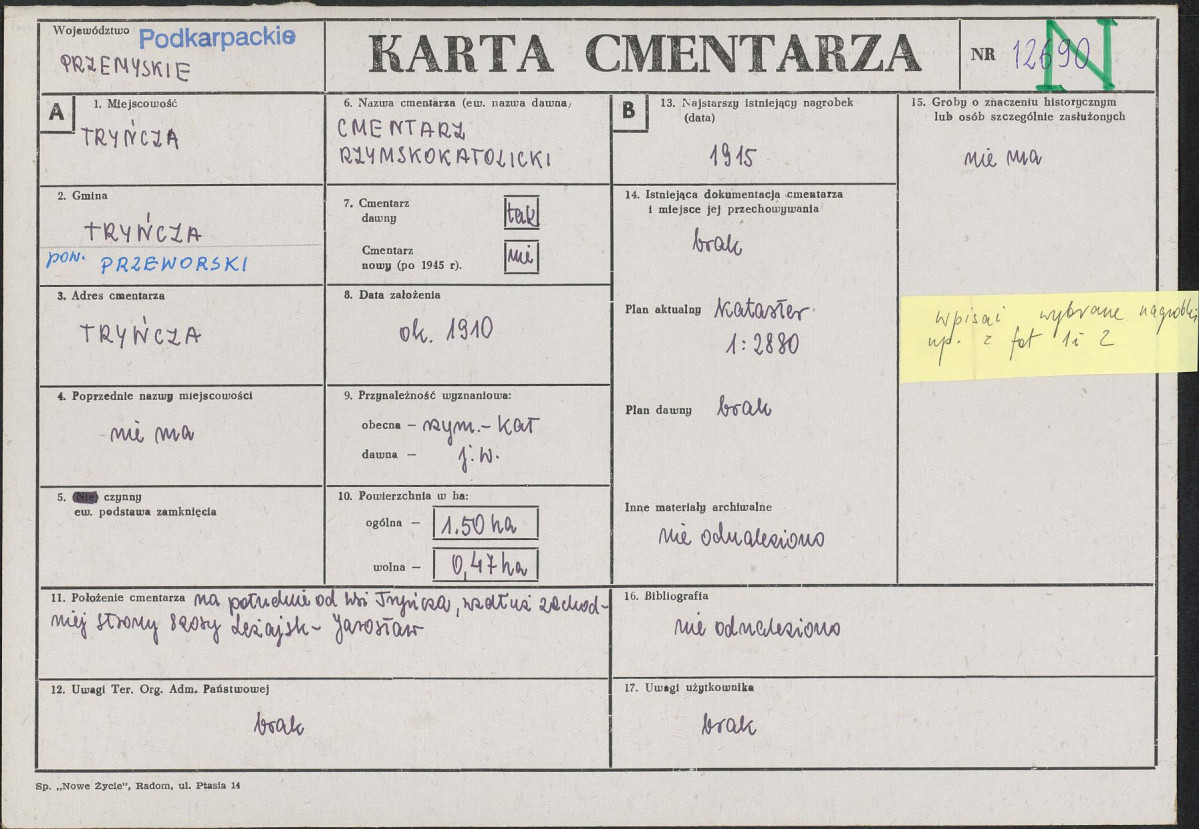 Województwo Podkarpackie
PRZEMYSKIE
KARTA CMENTARZA
NR 12690
N
A
1. Miejscowość
TRYŃCZA
2. Gmina
TRYŃCZA
pow. PRZEWORSKI
3. Adres cmentarza
TRYŃCZA
4. Poprzednie nazwy miejscowości
nie ma
5. Nie czynny
ew. podstawa zamknięcia
6. Nazwa cmentarza (ew. nazwa dawna)
CMENTARZ
RZYMSKOKATOLICKI
7. Cmentarz
dawny
tak
Cmentarz
nowy (po 1945 r).
nie
8. Data założenia
ok. 1910
9. Przynależność wyznaniowa:
obecna – rzym.-kat
dawna – j.w.
10. Powierzchnia w ha:
ogólna – 1.50 ha
wolna – 0,47 ha
11. Położenie cmentarza na południe od wsi Tryńcza, wzdłuż zachod-
niej strony szosy Leżajsk – Jarosław
12. Uwagi Ter. Org. Adm. Państwowej
brak
B
13. Najstarszy istniejący nagrobek
(data)
1915
14. Istniejąca dokumentacja cmentarza
i miejsce jej przechowywania
brak
Plan aktualny kataster
1:2880
Plan dawny brak
Inne materiały archiwalne
nie odnaleziono
15. Groby o znaczeniu historycznym
lub osób szczególnie zasłużonych
nie ma
wpisać wybrane nagrobki
np. z fot 1 i 2
16. Bibliografia
nie odnaleziono
17. Uwagi użytkownika
brak
Sp. „Nowe Życie", Radom, ul. Ptasia 14